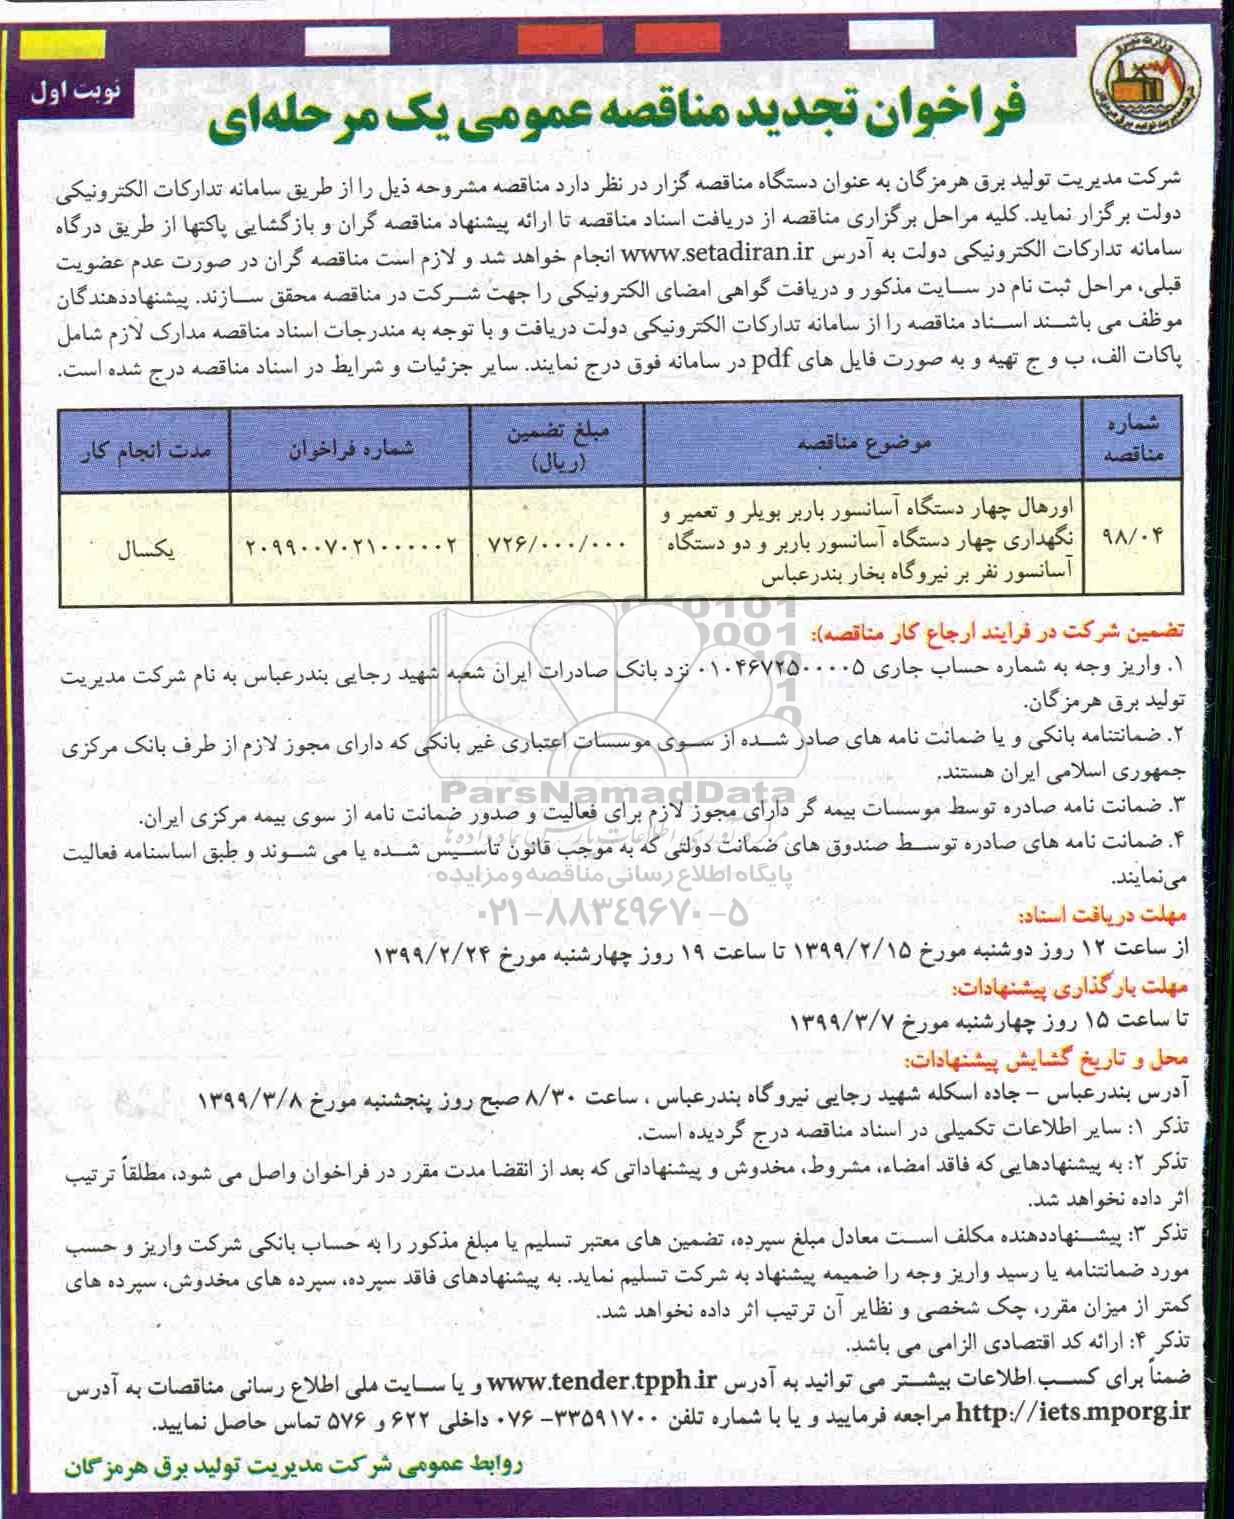 نوبت اول
فراخوان تجدید مناقصه عمومی یک مرحله‌ای
شرکت مدیریت تولید برق هرمزگان به عنوان دستگاه مناقصه گزار در نظر دارد مناقصه مشروحه ذیل را از طریق سامانه تدارکات الکترونیکی
دولت برگزار نماید. کلیه مراحل برگزاری مناقصه از دریافت اسناد مناقصه تا ارائه پیشنهاد مناقصه گران و بازگشایی پاکتها از طریق درگاه
سامانه تدارکات الکترونیکی دولت به آدرس www.setadiran.ir انجام خواهد شد و لازم است مناقصه گران در صورت عدم عضویت
قبلی، مراحل ثبت نام در سایت مذکور و دریافت گواهی امضای الکترونیکی را جهت شرکت در مناقصه محقق سازند. پیشنهاددهندگان
موظف می باشند اسناد مناقصه را از سامانه تدارکات الکترونیکی دولت دریافت و با توجه به مندرجات اسناد مناقصه مدارک لازم شامل
پاکات الف، ب و ج تهیه و به صورت فایل های pdf در سامانه فوق درج نمایند. سایر جزئیات و شرایط در اسناد مناقصه درج شده است.
شماره مناقصه
موضوع مناقصه
مبلغ تضمین (ریال)
شماره فراخوان
مدت انجام کار
۹۸/۰۴
اورهال چهار دستگاه آسانسور باربر بویلر و تعمیر و
نگهداری چهار دستگاه آسانسور باربر و دو دستگاه
آسانسور نفر بر نیروگاه بخار بندرعباس
۷۲۶/۰۰۰/۰۰۰
۲۰۹۹۰۰۷۰۲۱۰۰۰۰۰۲
یکسال
تضمین شرکت در فرایند ارجاع کار مناقصه):
۱. واریز وجه به شماره حساب جاری ۰۱۰۴۶۷۲۵۰۰۰۰۵ نزد بانک صادرات ایران شعبه شهید رجایی بندرعباس به نام شرکت مدیریت
تولید برق هرمزگان.
۲. ضمانتنامه بانکی و یا ضمانت نامه های صادر شده از سوی موسسات اعتباری غیر بانکی که دارای مجوز لازم از طرف بانک مرکزی
جمهوری اسلامی ایران هستند.
۳. ضمانت نامه صادره توسط موسسات بیمه گر دارای مجوز لازم برای فعالیت و صدور ضمانت نامه از سوی بیمه مرکزی ایران.
۴. ضمانت نامه های صادره توسط صندوق های ضمانت دولتی که به موجب قانون تاسیس شده یا می شوند و طبق اساسنامه فعالیت
می‌نمایند.
ParsNamadData
پایگاه اطلاع رسانی مناقصه و مزایده
۰۲۱-۸۸۳۴۹۶۷۰-۵
مهلت دریافت اسناد:
از ساعت ۱۲ روز دوشنبه مورخ ۱۳۹۹/۲/۱۵ تا ساعت ۱۹ روز چهارشنبه مورخ ۱۳۹۹/۲/۲۴
مهلت بارگذاری پیشنهادات:
تا ساعت ۱۵ روز چهارشنبه مورخ ۱۳۹۹/۳/۷
محل و تاریخ گشایش پیشنهادات:
آدرس بندرعباس - جاده اسکله شهید رجایی نیروگاه بندرعباس ، ساعت ۸/۳۰ صبح روز پنجشنبه مورخ ۱۳۹۹/۳/۸
تذکر ۱: سایر اطلاعات تکمیلی در اسناد مناقصه درج گردیده است.
تذکر ۲: به پیشنهادهایی که فاقد امضاء، مشروط، مخدوش و پیشنهاداتی که بعد از انقضا مدت مقرر در فراخوان واصل می شود، مطلقاً ترتیب
اثر داده نخواهد شد.
تذکر ۳: پیشنهاددهنده مکلف است معادل مبلغ سپرده، تضمین های معتبر تسلیم یا مبلغ مذکور را به حساب بانکی شرکت واریز و حسب
مورد ضمانتنامه یا رسید واریز وجه را ضمیمه پیشنهاد به شرکت تسلیم نماید. به پیشنهادهای فاقد سپرده، سپرده های مخدوش، سپرده های
کمتر از میزان مقرر، چک شخصی و نظایر آن ترتیب اثر داده نخواهد شد.
تذکر ۴: ارائه کد اقتصادی الزامی می باشد.
ضمناً برای کسب اطلاعات بیشتر می توانید به آدرس www.tender.tpph.ir و یا سایت ملی اطلاع رسانی مناقصات به آدرس
http://iets.mporg.ir مراجعه فرمایید و یا با شماره تلفن ۳۳۵۹۱۷۰۰- ۰۷۶ داخلی ۶۲۲ و ۵۷۶ تماس حاصل نمایید.
روابط عمومی شرکت مدیریت تولید برق هرمزگان